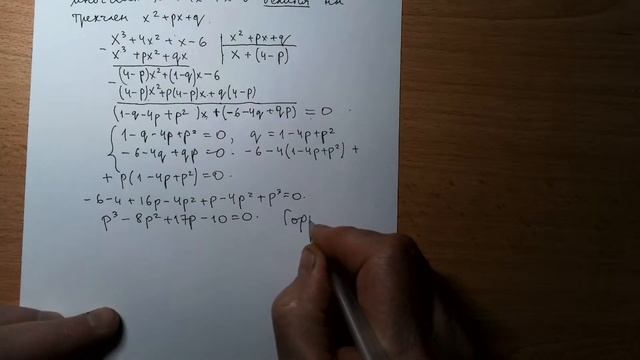 трехчлен x² + px + q.
x³ + 4x² + x - 6 | x² + px + q
- x³ + px² + qx | x + (4-p)
(4-p)x² + (1-q)x - 6
- (4-p)x² + p(4-p)x + q(4-p)
(1-q-4p+p²)x + (-6-4q+qp) = 0.
{ 1-q-4p+p² = 0, q = 1-4p+p²
-6-4q+qp = 0. -6-4(1-4p+p²) +
+ p(1-4p+p²) = 0.
-6-4+16p-4p²+p-4p²+p³=0.
p³-8p²+17p-10=0. Гор